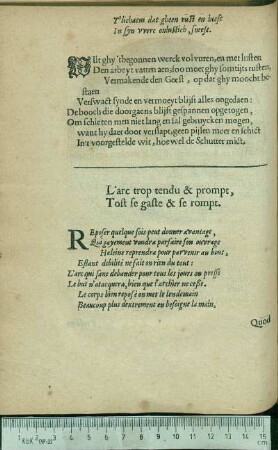 T'lichaem dat gheen rust en heeft
In syn werc onlustich, sneeft.
Wilt ghy 'tbegonnen werck volvuren, en met lusten
Den arbeyt vatten aen, soo moet ghy somtijts rusten,
Vermakende den Geest, op dat ghy moocht bestaen
Verswackt synde en vermoeyt blijft alles ongedaen:
De booch die doorgaens blijft gespannen opgetogen,
Om schieten men niet lang en sal gebruycken mogen,
want hy daer door verslapt, geen pijlen meer en schict
In't voorgestelde wit, hoe wel de Schutter mict.
L'arc trop tendu & prompt,
Tost se gaste & se rompt.
Reposer quelque fois peut donner avantage,
Qui gayement voudra parfaire son ouvrage
Haleine reprendra pour parvenir au bout,
Estant debilité ne fait on rien du tout:
L'arc qui sans debander pour tous les jours on presse
Le but n'atacquera, bien que l'archier ne cesse.
Le corps bien reposé on met le lendemain
Beaucoup plus dextrement en besoigne la main.
Quod
1 2 3 4 5 6 7 8 9 10 11 12 13 14 15 cm